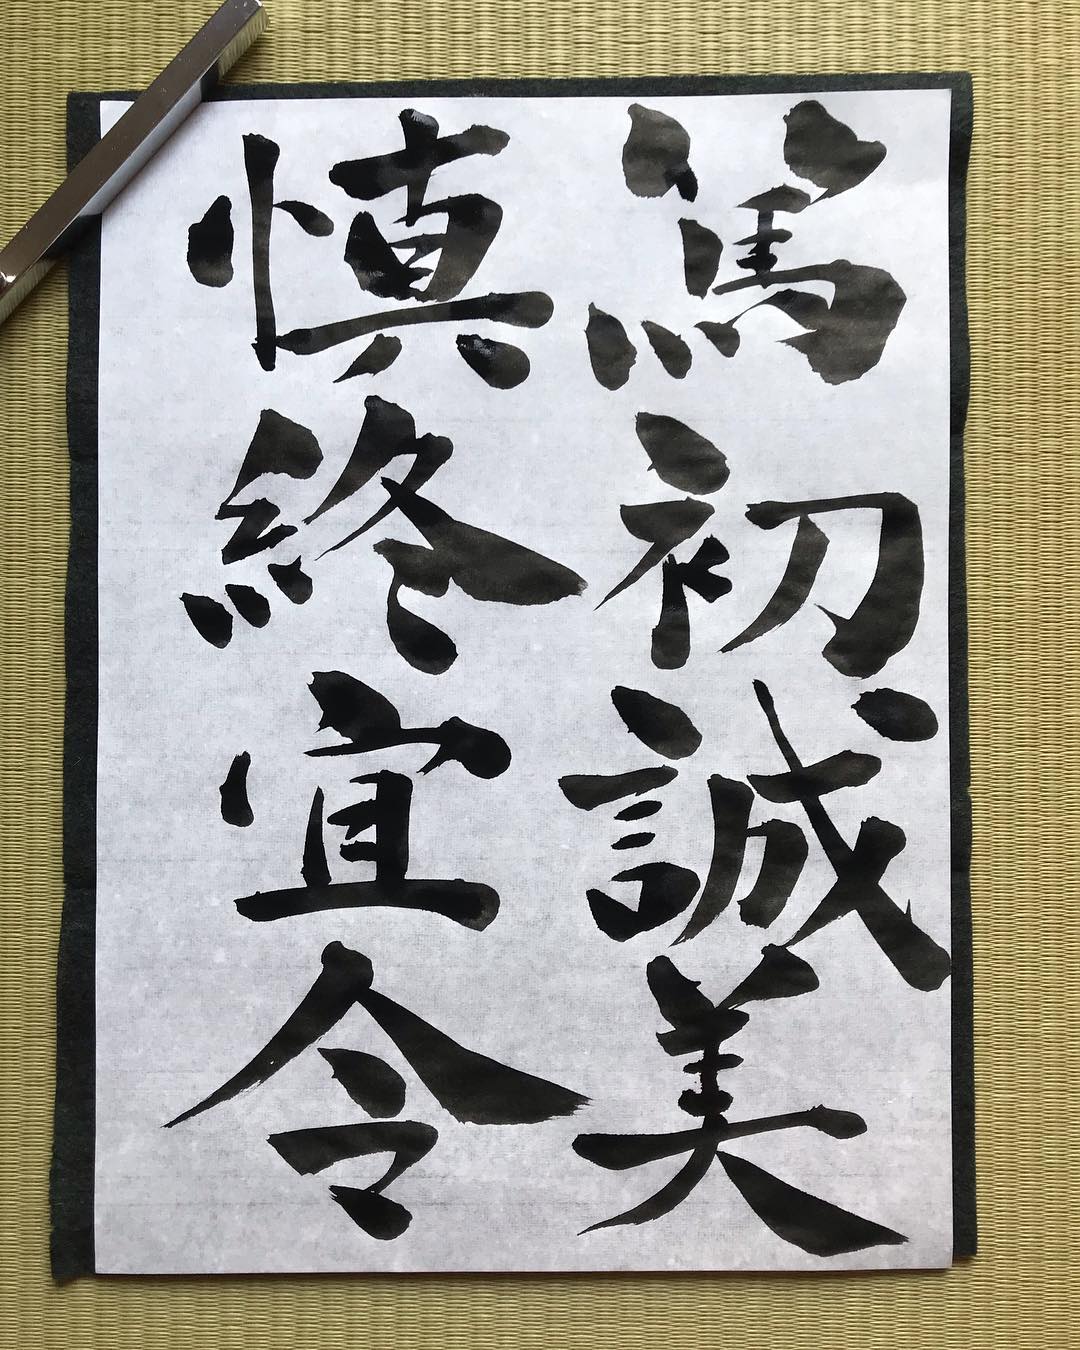 篤初誠美
慎終宜令